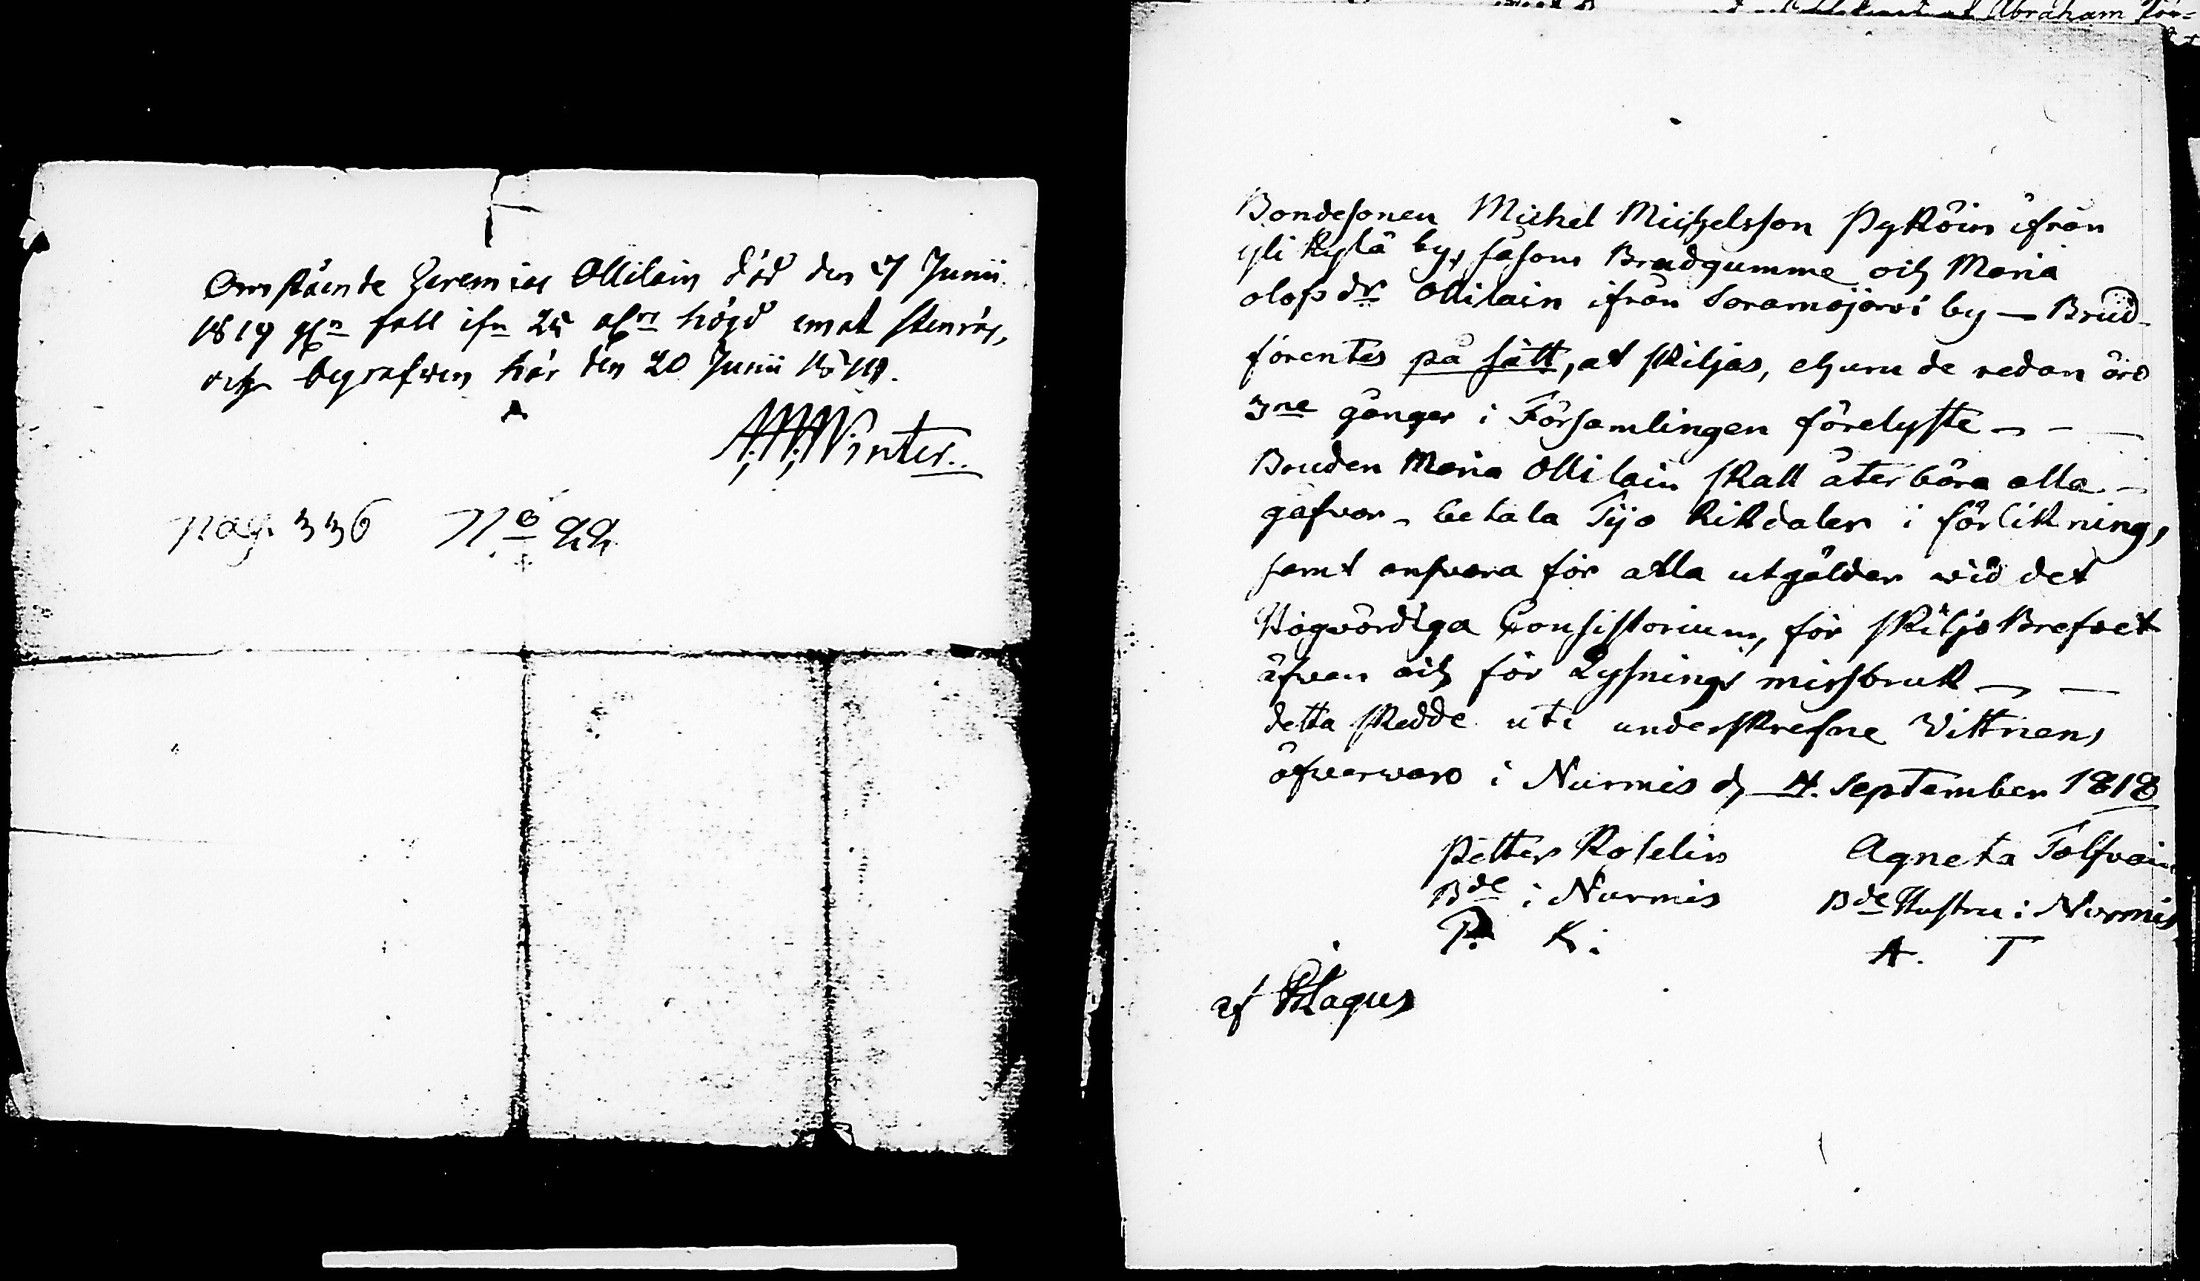 Omstående Jeremias Ollilain död den 17 Junii
1819 gm fall ifn 25 alnrs högd emot stenrös,
och begrafwen här den 20 Junii 1819.
A. W. Winter.
pag. 336 No 22
Abraham
Bondesonen Michel Michelsson Pyköin ifrån
yli kylä by, såsom Brudgumme och Maria
olofsdr Ollilain ifrån Saramojärvi by — Brud
förentes på sätt, at skiljas, ehuru de redan äro
3ne gånger i Församlingen förelyste — - —
Bruden Maria Ollilain skall återbära alla —
gåfvor - betala Tijo Rikdaler i förlikning,
samt ansvara för alla utgålder wid det
Högvördiga Consistorium, för skiljoBrefvet
äfven och för Lysnings missbruk — —
detta skedde uti underskrefne Vittnens
öfvervaro i Nurmis d. 4. September 1818
Petter Koselin Agneta Tolfvain
Bde i Nurmis Bde Hustru i Nurmis
P. K. A. T
af